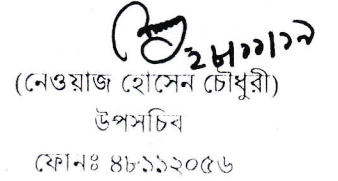 ২৮/১১/১৯
(নেওয়াজ হোসেন চৌধুরী)
উপসচিব
ফোনঃ ৪৮১১২০৫৬